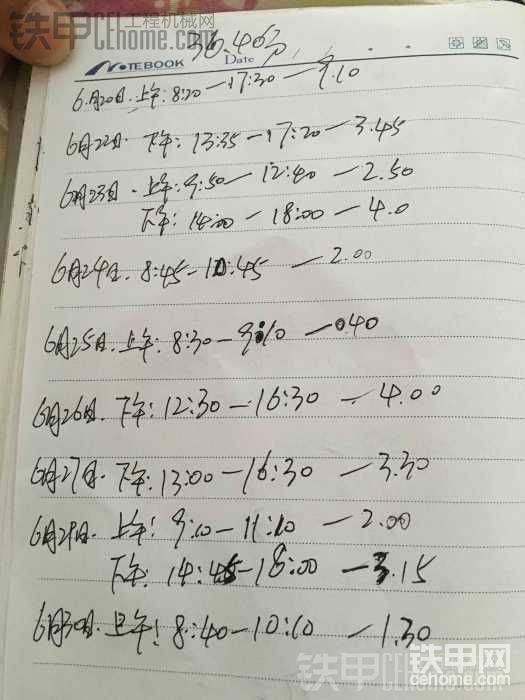 铁甲 工程机械网
Cehome.com
36.40分
NOTEBOOK Date
6.月20日.上午:8:20—17:30—9.10
6月22日 下午:13:35—17:20—3.45
6月23日.上午:9:50—12:40—2.50
下午:14:00—18:00—4.0
6月24日.8:45—10:45—2.00
6月25日.上午:8:30—9:10—0.40
6月26日.下午:12:30—16:30—4.00
6月27日.下午:13:00—16:30—3.30
6月29日.上午:9:10—11:10—2.00
下午:14:45—18:00—3.15
6月30日.上午:8:40—10:10—1.30
铁甲工程机械网
Cehome.com
铁甲网
cehome.com